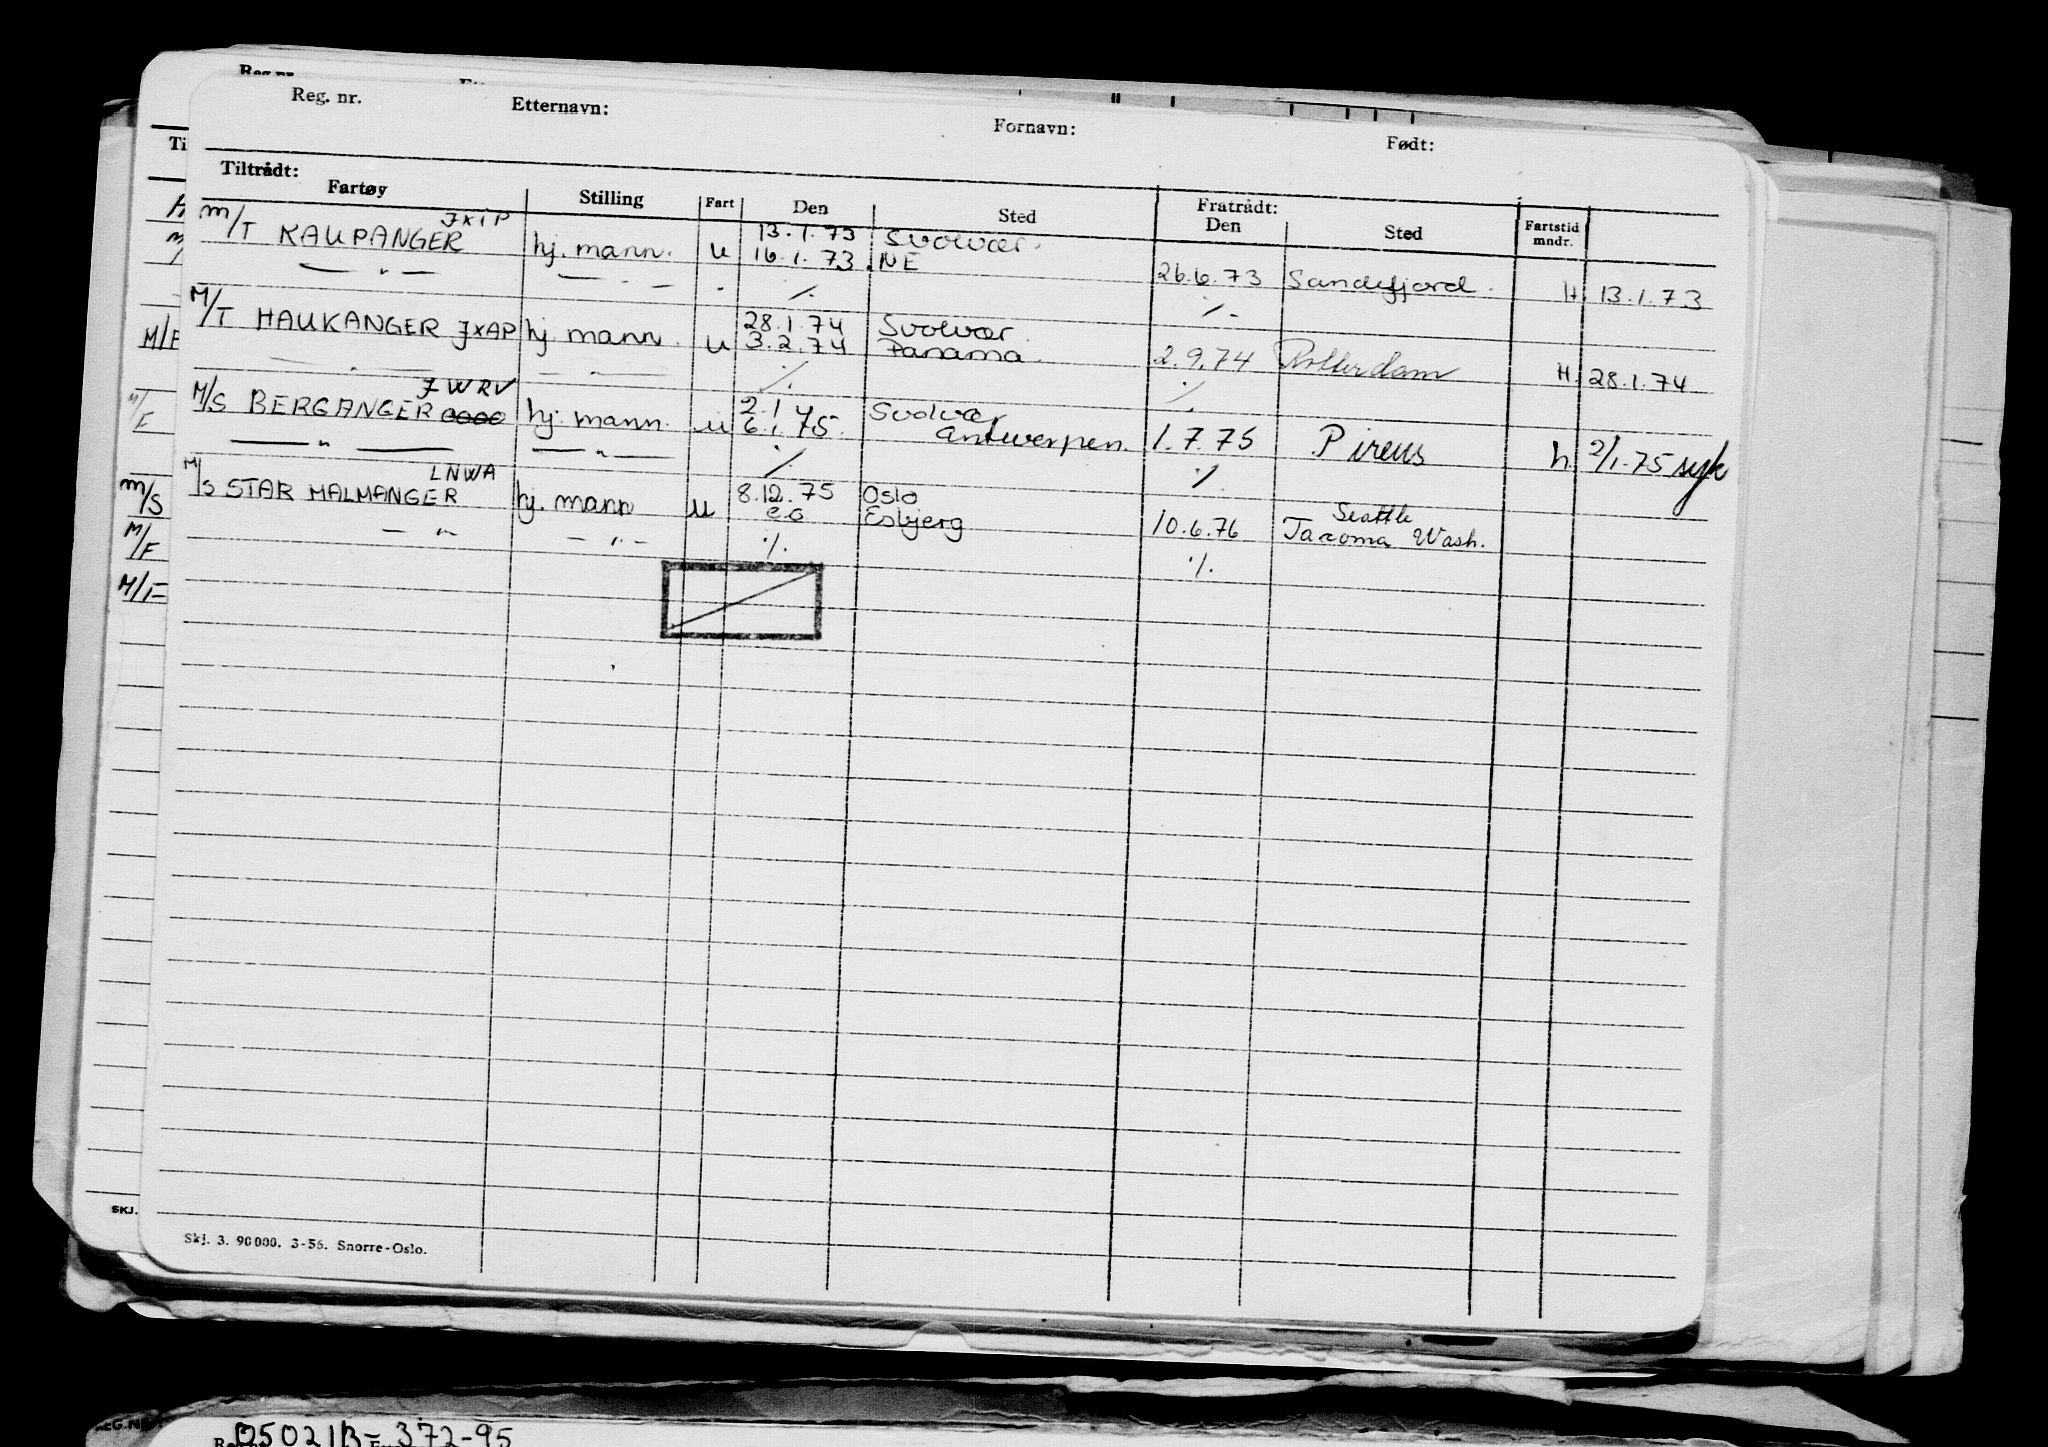 Reg. nr. Etternavn: Fornavn: Født:
Tiltrådt: Fratrådt:
Fartøy Stilling Fart Den Sted Den Sted Fartstid mndr.
JXIP 13.1.73 Svolvær.
M/T KAUPANGER hj. mann. u 16.1.73 NE 26.6.73 Sandefjord. H. 13.1.73
— " — — " — " ٪ ٪ -
28.1.74 Svolvær
M/T HAUKANGER JXAP hj. mann. u 3.2.74 Panama. 2.9.74 Rotterdam H. 28.1.74
— " — — " — ٪ ٪
JWRV 2.1 Svolvær
M/S BERGANGER hj. mann. u 6.1.75. Antwerpen. 1.7.75 Pireus h. 2/1.75 syk
— " — — " — ٪ ٪
LNWA 8.12.75 Oslo Seattle
M/S STAR MALMANGER hj. mann u e.o Esbjerg 10.6.76 Tacoma Wash.
— " — — " — ٪ ٪
M/F
M/S
M/F
M/F
SKJ.
Skj. 3. 90000. 3-56. Snorre-Oslo.
REG.N
050211B- 372-95